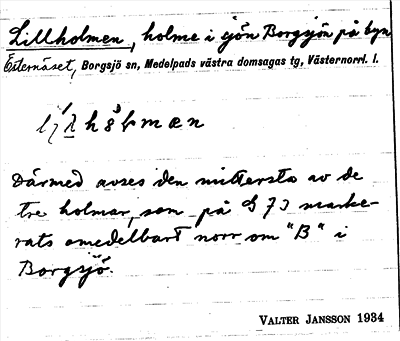 Lillholmen, holme i sjön Borgsjön på byn
Östernäset, Borgsjö sn, Medelpads västra domsagas tg, Västernorrl. l.
Därmed avses den mittersta av de
tre holmar, som på G 73 marke-
rats omedelbart norr om "B" i
Borgsjö.
VALTER JANSSON 1934